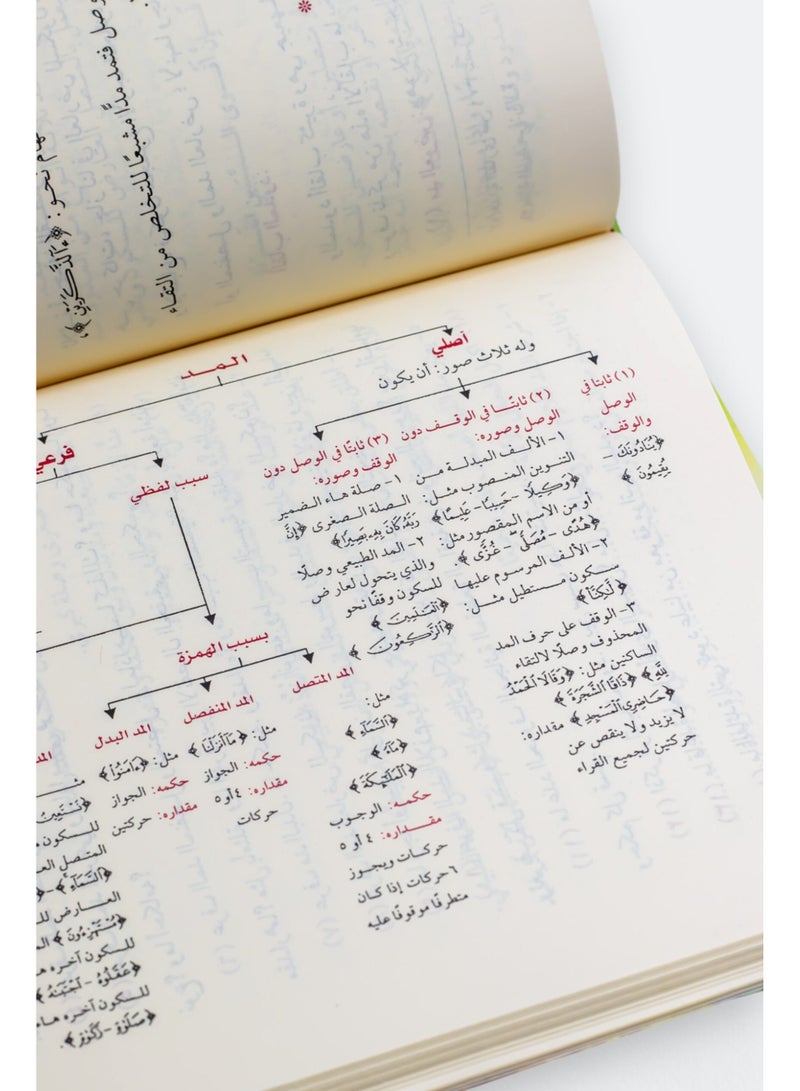 وصل فتمد مدًّا مشبعًا للتخلص من التقاء
نحو: ﴿ءَآلذَّكَرَيْنِ﴾،
المد
أصلي
وله ثلاث صور: أن يكون
(١) ثابتا في
الوصل
والوقف:
﴿يُنَادُونَكَ -
يُقِيمُونَ﴾
(٢) ثابتًا في الوقف دون
الوصل وصوره:
١- الألف المبدلة من
التنوين المنصوب مثل:
﴿وَكِيلًا - حَسِيبًا - عَلِيمًا﴾
أو من الاسم المقصور مثل:
﴿هُدًى - مُصَلًّى - غُزًّى﴾.
٢- الألف المرسوم عليها
سكون مستطيل مثل:
﴿لَّٰكِنَّا﴾
٣- الوقف على حرف المد
المحذوف وصلًا لالتقاء
الساكنين مثل: ﴿وَقَالَا ٱلْحَمْدُ
لِلَّهِ﴾ ﴿ذَاقَا ٱلشَّجَرَةَ﴾
﴿حَاضِرِي ٱلْمَسْجِدِ﴾ مقداره:
لا يزيد ولا ينقص عن
حركتين لجميع القراء
(٣) ثابتًا في الوصل دون
الوقف وصوره:
١- صلة هاء الضمير
الصلة الصغرى ﴿إِنَّ
رَبَّهُ كَانَ بِهِ بَصِيرًا﴾
٢- المد الطبيعي وصلًا
والذي يتحول لعارض
للسكون وقفًا نحو
﴿ٱلْعَٰلَمِينَ﴾
﴿ٱلرَّٰكِعُونَ﴾
فرعي
سبب لفظي
بسبب الهمزة
المد المتصل
مثل:
﴿ٱلسَّمَآءِ﴾
﴿مَآءً﴾
﴿ٱلْمَلَٰٓئِكَةُ﴾
حكمه: الوجوب
مقداره: ٤ أو ٥
حركات ويجوز
٦ حركات إذا كان
متطرفًا موقوفًا عليه
المد المنفصل
مثل: ﴿مَآ أَنزَلْنَا﴾
حكمه: الجواز
مقداره: ٤ أو ٥
حركات
المد البدل
مثل: ﴿ءَامَنُوا﴾
حكمه: الجواز
مقداره: حركتين
﴿نَسْتَعِينُ﴾
للسكون
المتصل
﴿ٱلسَّمَآءِ﴾
العارض
﴿مُسْتَهْزِءُونَ﴾
للسكون آخره
﴿عَقَلُوهُ - ٱجْتَبَٰهُ﴾
للسكون آخره هاء
﴿صَلَوٰةَ - زَكَوٰةَ﴾.